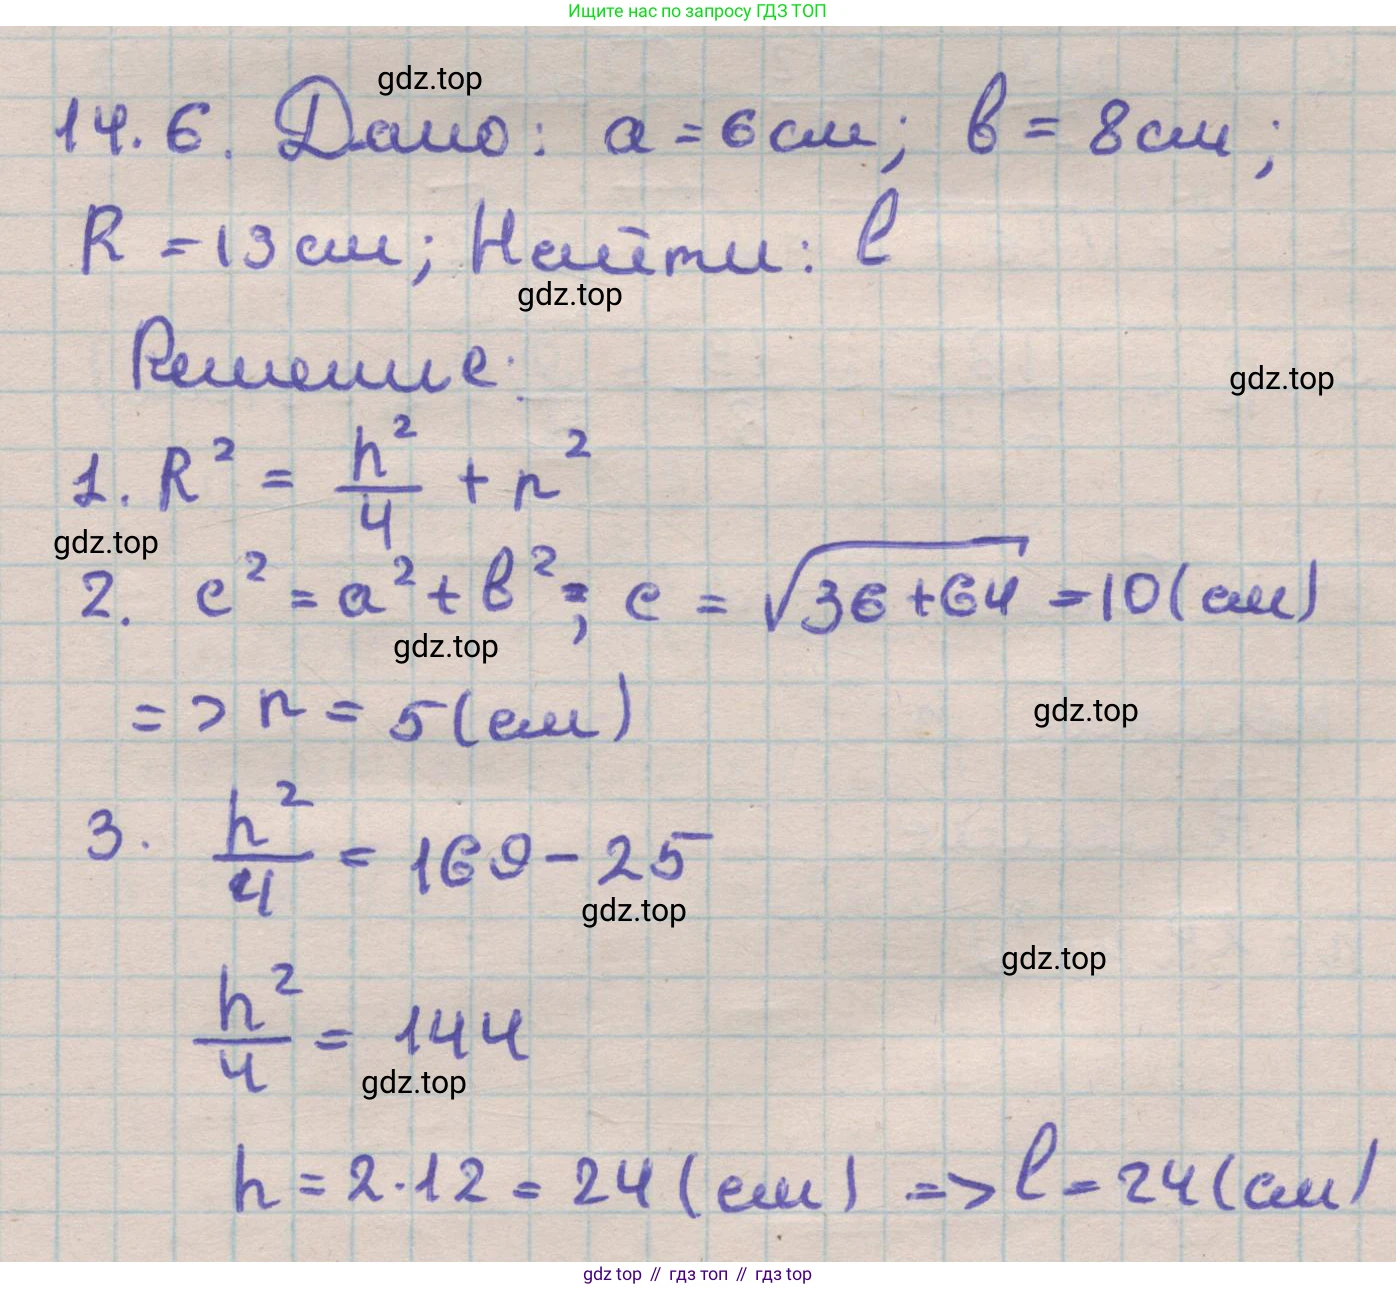 Ищите нас по запросу ГДЗ ТОП
gdz.top
14.6. Дано: a = 6 см; b = 8 см;
R = 13 см; Найти: l
gdz.top
Решение:
gdz.top
1. R² = h²/4 + r²
gdz.top
2. c² = a² + b²; c = √(36+64) = 10 (см)
gdz.top
=> r = 5 (см)
gdz.top
3. h²/4 = 169 - 25
gdz.top
gdz.top
h²/4 = 144
gdz.top
h = 2·12 = 24 (см) => l = 24 (см)
gdz top // гдз топ // гдз top